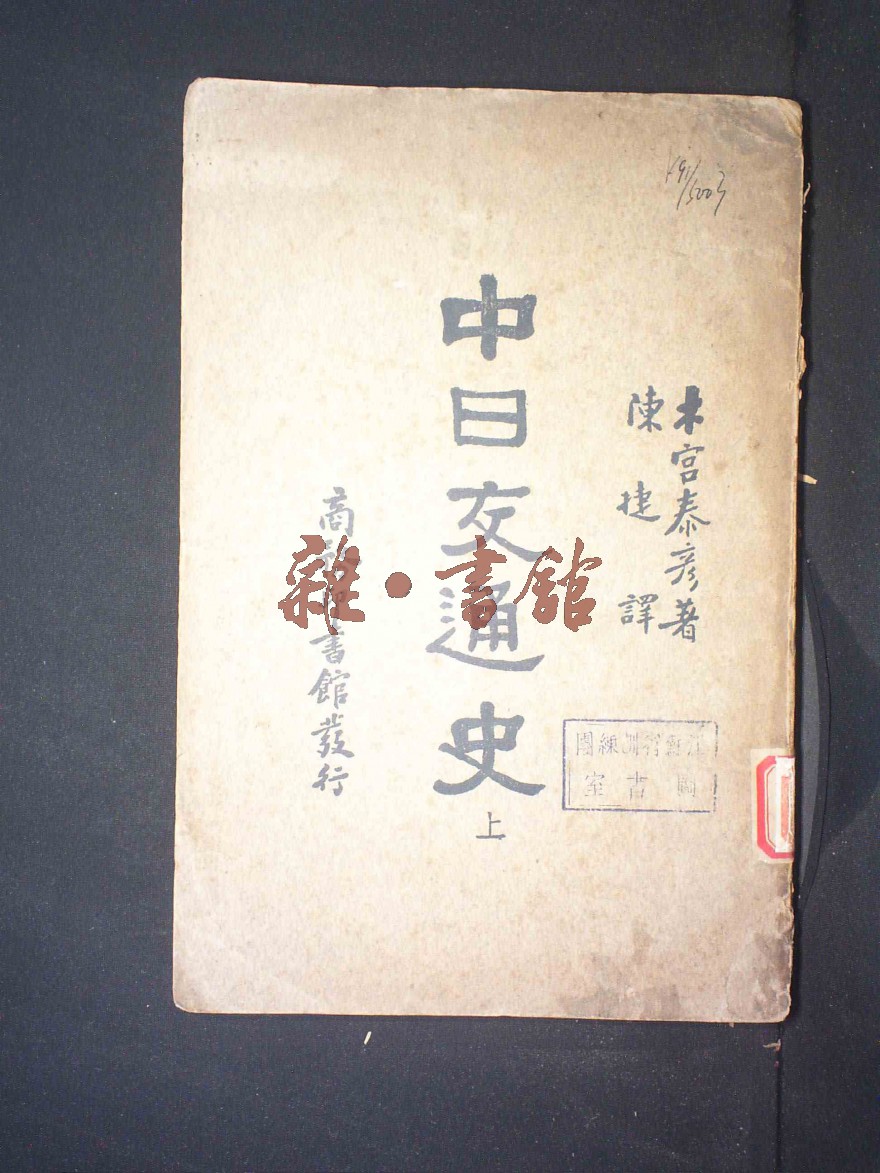 木宮泰彦著
陳捷譯
中日交通史
上
商務印書館發行
雜·書館
訓練團
圖書室